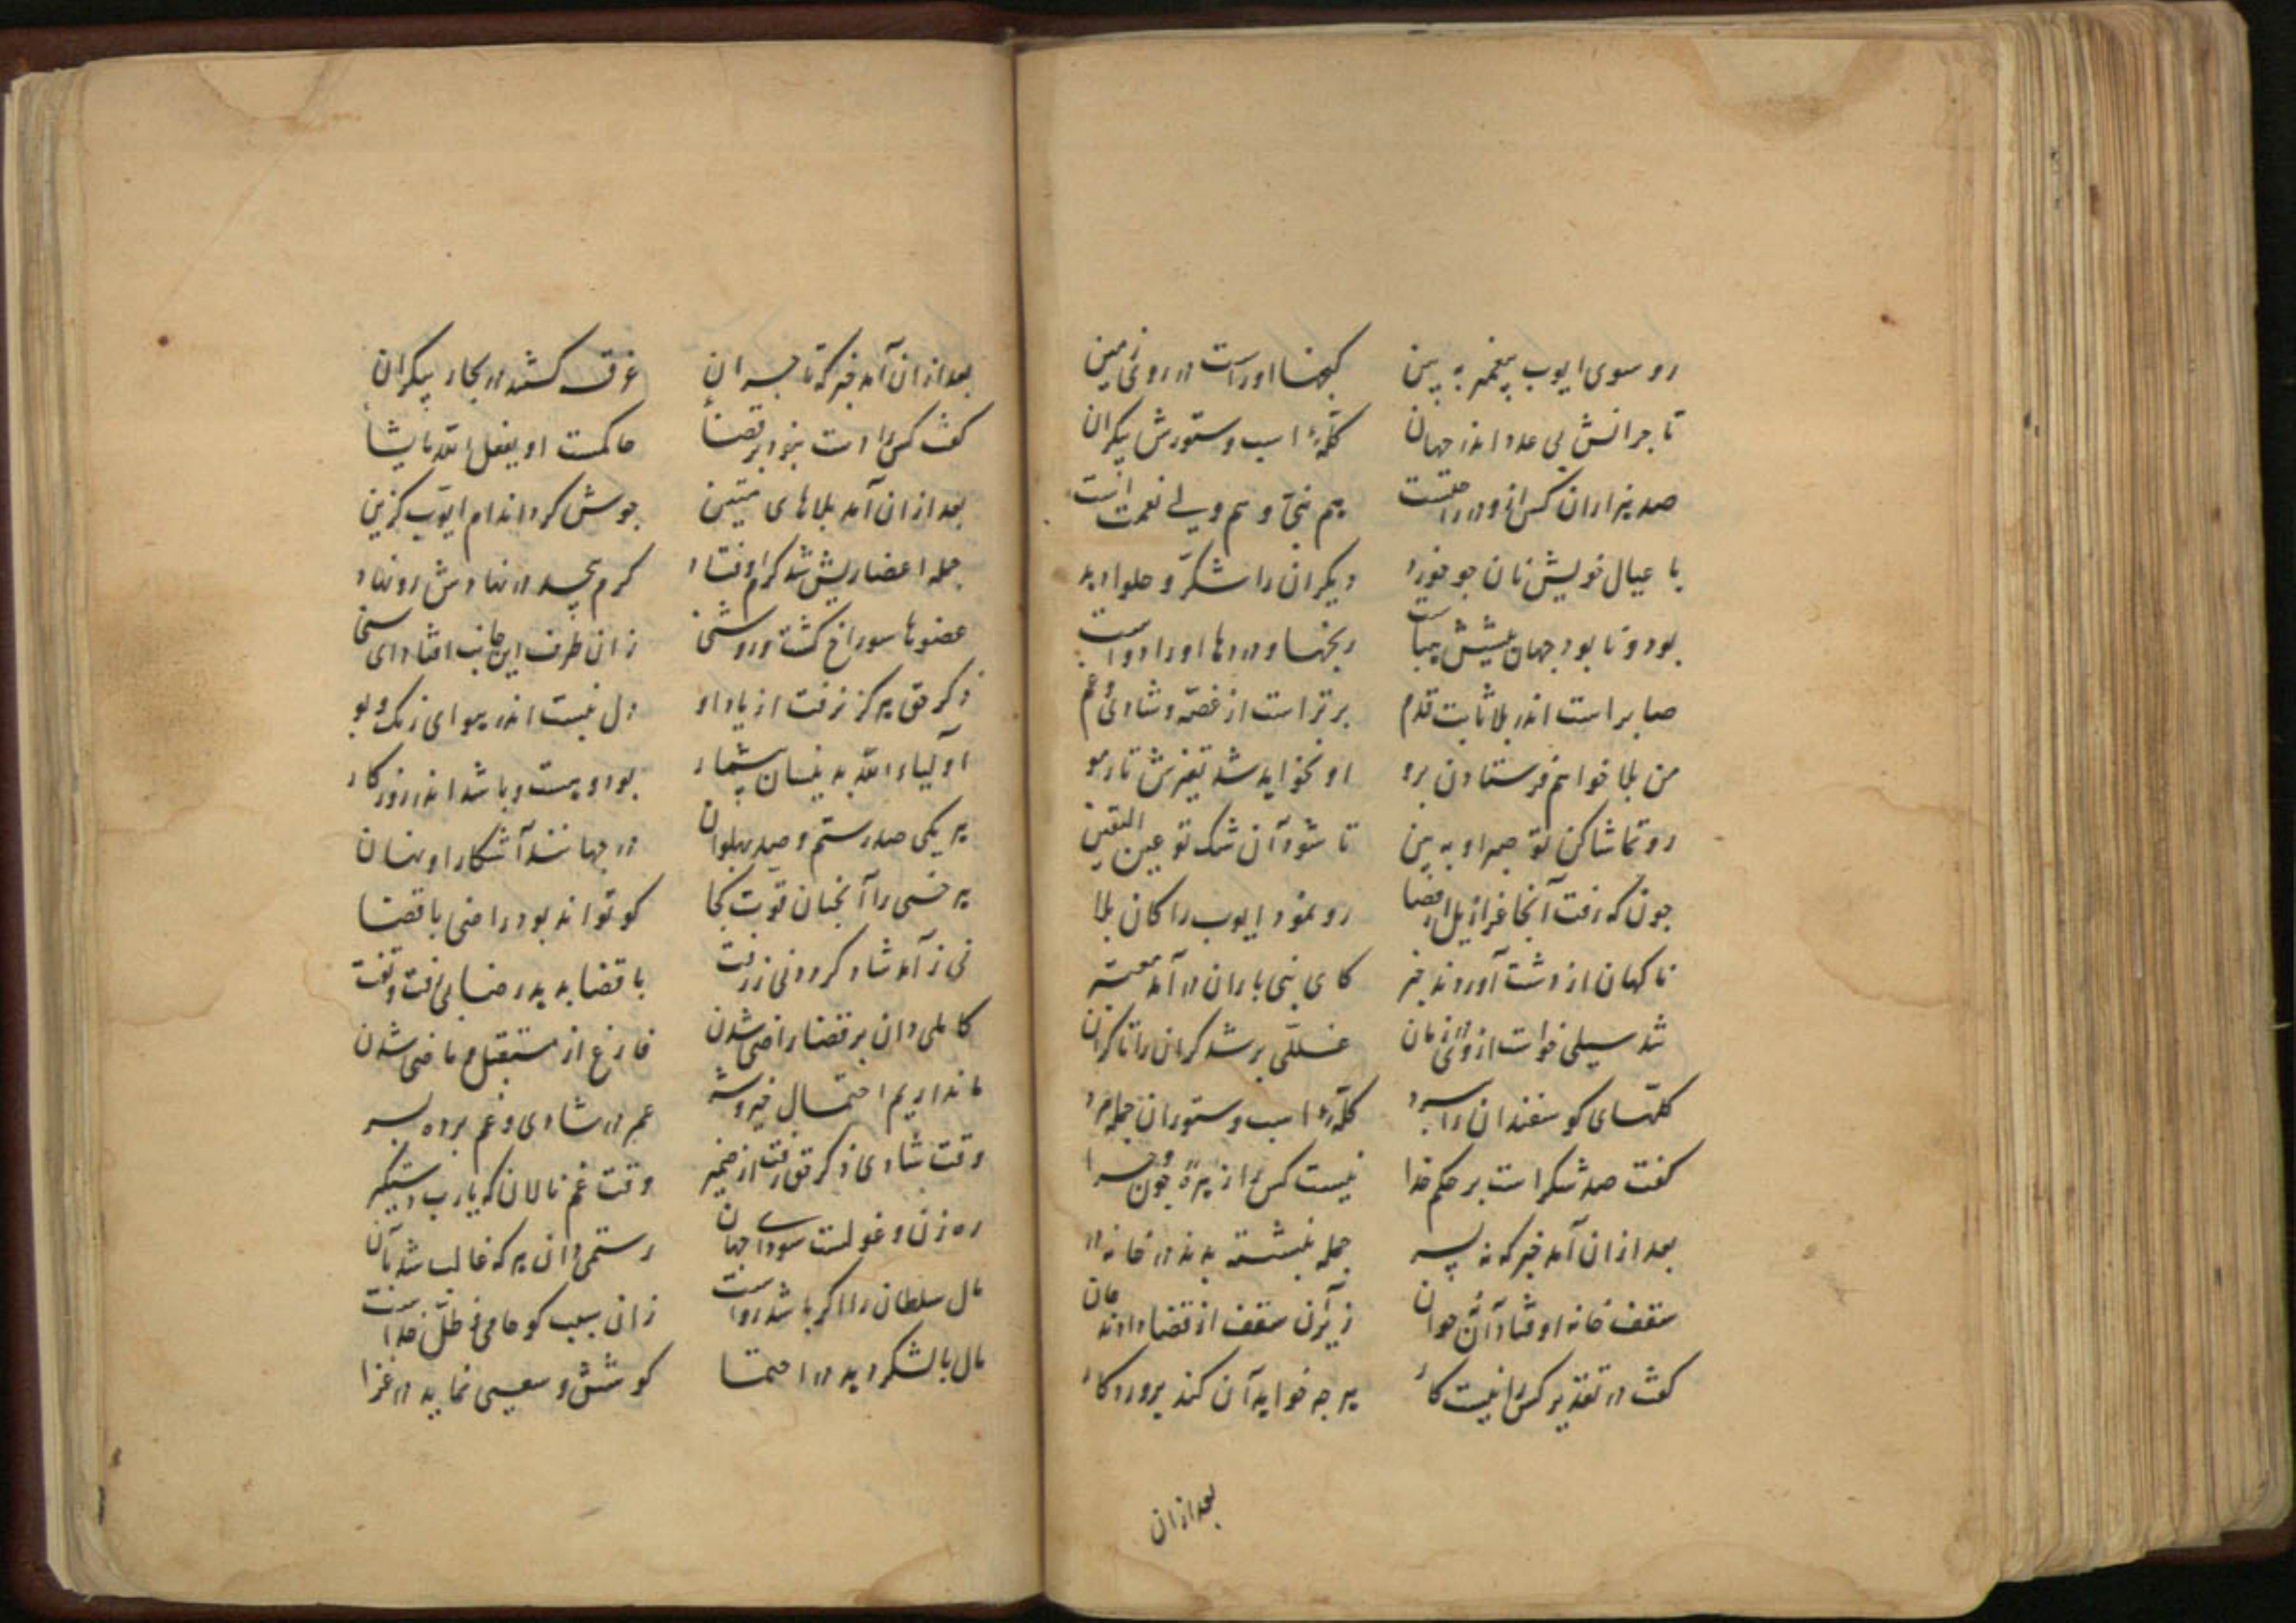 رو سوی ایوب پیغمبر به بین گنجها اوراست در روی زمین
تاجرانش بی عدد اندر جهان گلهٔ اسب و ستورش بیکران
صد هزاران کس هم نبی و هم ولی نعمت است
با عیال خویش نان جو خورد دیگران را شکر و حلوا دهد
بود و نابود جهان پیشش هباست رنجها و دردها اورا دواست
صابر است اندر بلا ثابت قدم برتر است از غصه و شادی و غم
من بلا خواهم فرستادن برو او نخواهد شد تغیرش تار مو
رو تماشا کن تو صبر او به بین تا شود آن شک تو عین الیقین
چون که رفت آنجا عزازیل از قضا رو نمود ایوب را کان بلا
ناکهان از دشت آوردند خبر کای نبی باران در آمد
شد سیلی خواست از وادی کران را تا کران
گلهای کوسفندان را ببرد گلهٔ اسب و ستوران جمله مرد
کفت صد شکر است بر حکم خدا نیست کس را زهرهٔ چون و چرا
بعد ازان آمد خبر که نه پسر جمله بنشسته بدند در خانه در
سقف خانه اوفتاد آن نه جوان زیر آن سقف از قضا دادند جان
کفت در تقدیر کس را نیست کار هر چه خواهد آن کند پروردکار
بعد ازان
بعد ازان آمد خبر که تاجران غرق کشتند در بحار بیکران
کفت کس را دست نبود بر قضا حاکمست او یفعل الله ما یشا
بعد ازان آمد بلاهای متین جوش کرد اندام ایوب کزین
جمله اعضا ریش شد کرم اوفتاد کرم بیحد در نهادش رو نهاد
عضوها سوراخ کشت و روشنی زان طرف این جانب افتاد ای سنی
ذکر حق هرکز نرفت از یاد او دل نبست اندر هوای رنک و بو
اولیاء الله بدینسان بیشمار بود و هست و باشد اندر روزکار
هر یکی صد رستم و صد پهلوان در جهانند آشکارا و نهان
هر خسی را آنچنان قوت کجا کو تواند بود راضی با قضا
نی ز آمد شاد کرد و نی ز رفت با قضا بدهد رضا بی نفت و تفت
کاملی دان بر قضا راضی شدن فارغ از مستقبل و ماضی شدن
ما نداریم احتمال خیر و شر عمر در شادی و غم برده بسر
وقت شادی ذکر حق رفت از ضمیر وقت غم نالان که یا رب دستکیر
ره زن و غولست سودای جهان رستمی دان هر که غالب شد بآن
مال سلطان را اکر باشد رواست زان سبب کو حامی و ظل خداست
مال با لشکر دهد در احتما کوشش و سعیی نماید در غزا